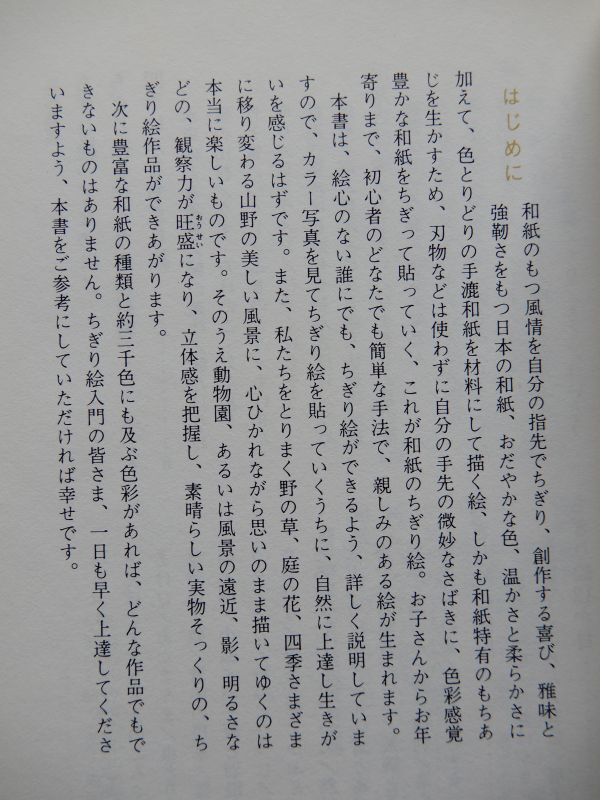 はじめに
和紙のもつ風情を自分の指先でちぎり、創作する喜び、雅味と
強靭さをもつ日本の和紙、おだやかな色、温かさと柔らかさに
加えて、色とりどりの手漉和紙を材料にして描く絵、しかも和紙特有のもちあ
じを生かすため、刃物などは使わずに自分の手先の微妙なさばきに、色彩感覚
豊かな和紙をちぎって貼っていく、これが和紙のちぎり絵。お子さんからお年
寄りまで、初心者のどなたでも簡単な手法で、親しみのある絵が生まれます。
本書は、絵心のない誰にでも、ちぎり絵ができるよう、詳しく説明していま
すので、カラー写真を見てちぎり絵を貼っていくうちに、自然に上達し生きが
いを感じるはずです。また、私たちをとりまく野の草、庭の花、四季さまざま
に移り変わる山野の美しい風景に、心ひかれながら思いのまま描いてゆくのは
本当に楽しいものです。そのうえ動物園、あるいは風景の遠近、影、明るさな
どの、観察力が旺盛おうせいになり、立体感を把握し、素晴らしい実物そっくりの、ち
ぎり絵作品ができあがります。
次に豊富な和紙の種類と約三千色にも及ぶ色彩があれば、どんな作品でもで
きないものはありません。ちぎり絵入門の皆さま、一日も早く上達してくださ
いますよう、本書をご参考にしていただければ幸せです。